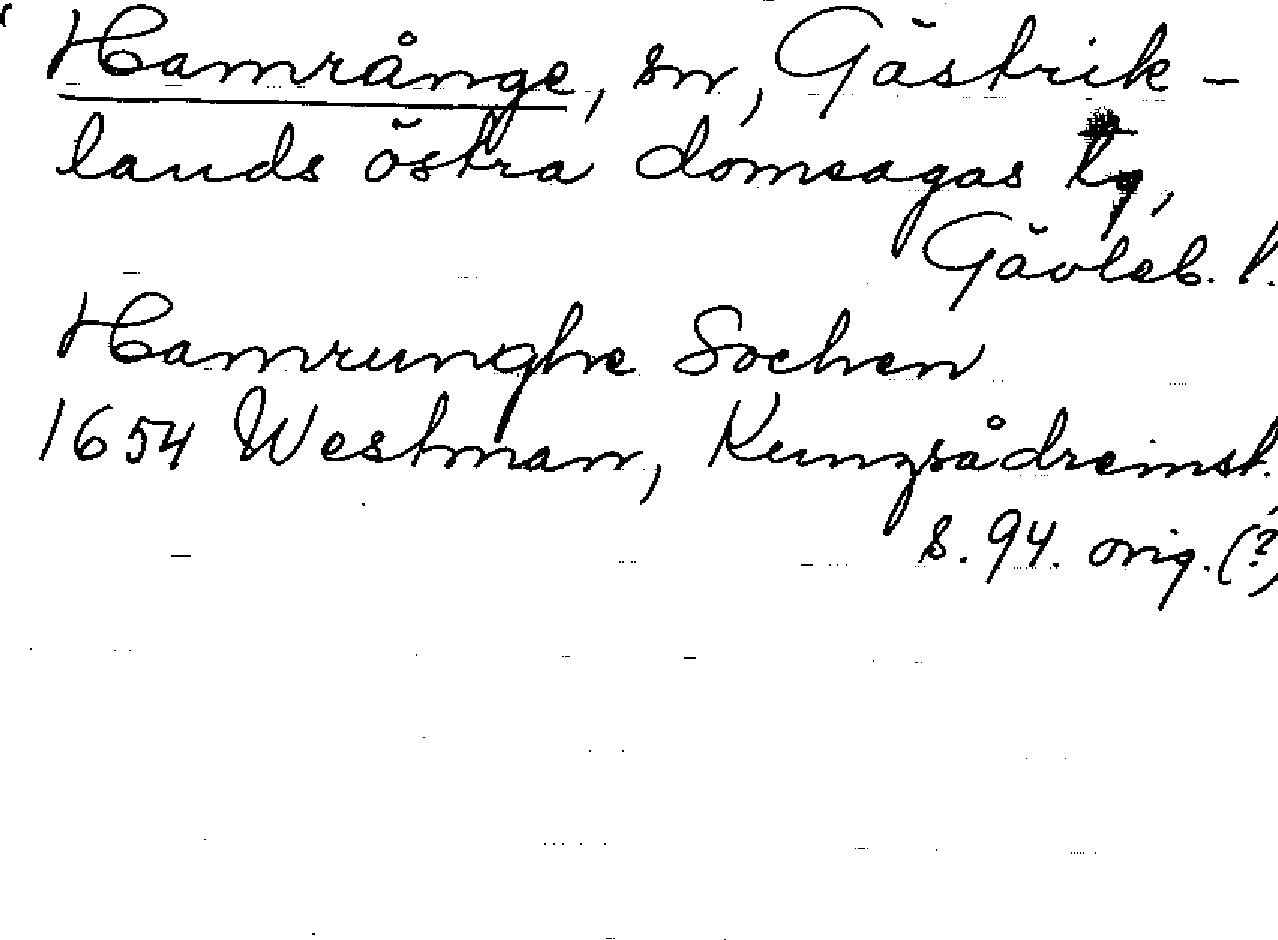 Hamrånge, sn, Gästrik-
lands östra domsagas tg,
Gävleb. l.
Hamrunghe Sochen
1654 Westman, Kungsådreinst.
s. 94. orig. (?)